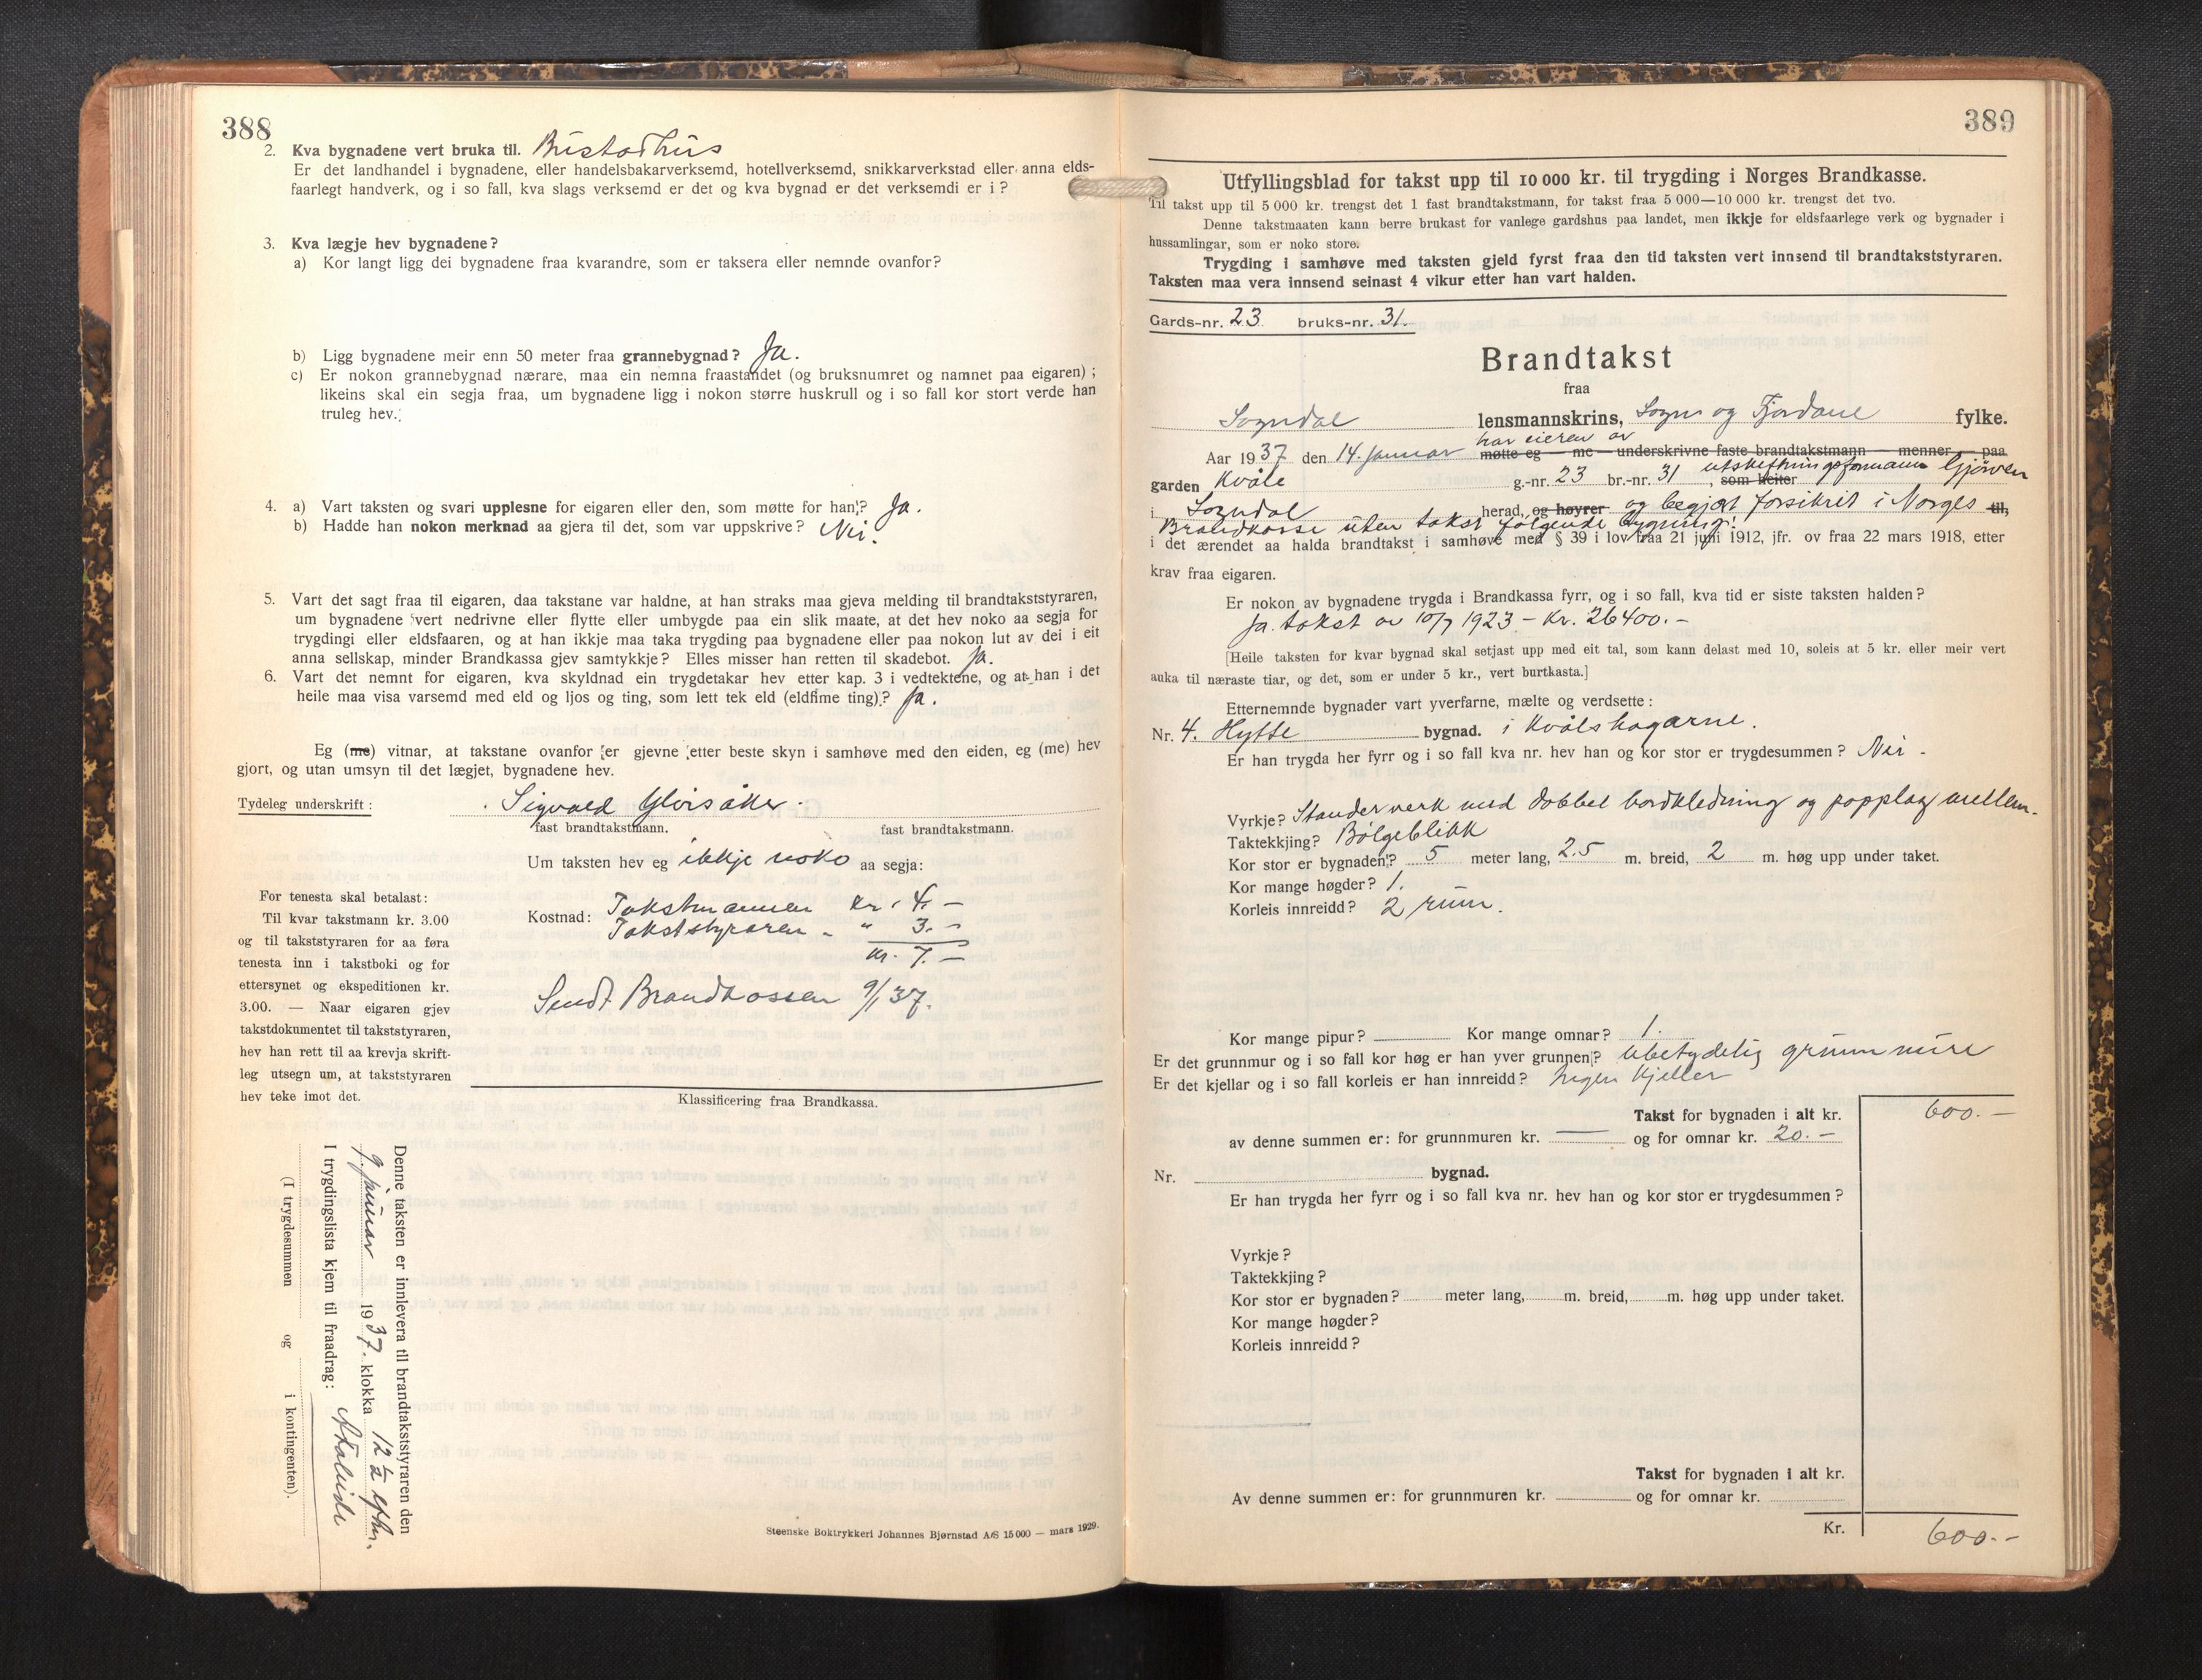 388
2. Kva bygnadene vert bruka til. Bustadhus
Er det landhandel i bygnadene, eller handelsbakarverksemd, hotellverksemd, snikkarverkstad eller anna elds-
faarlegt handverk, og i so fall, kva slags verksemd er det og kva bygnad er det verksemdi er i?
3. Kva lægje hev bygnadene?
a) Kor langt ligg dei bygnadene fraa kvarandre, som er taksera eller nemnde ovanfor?
b) Ligg bygnadene meir enn 50 meter fraa grannebygnad? Ja.
c) Er nokon grannebygnad nærare, maa ein nemna fraastandet (og bruksnumret og namnet paa eigaren);
likeins skal ein segja fraa, um bygnadene ligg i nokon større huskrull og i so fall kor stort verde han
truleg hev.
4. a) Vart taksten og svari upplesne for eigaren eller den, som møtte for han? Ja.
b) Hadde han nokon merknad aa gjera til det, som var uppskrive? Nei.
5. Vart det sagt fraa til eigaren, daa takstane var haldne, at han straks maa gjeva melding til brandtakststyraren,
um bygnadene vert nedrivne eller flytte eller umbygde paa ein slik maate, at det hev noko aa segja for
trygdingi eller eldsfaaren, og at han ikkje maa taka trygding paa bygnadene eller paa nokon lut av dei i eit
anna sellskap, minder Brandkassa gjev samtykkje? Elles misser han retten til skadebot. Ja.
6. Vart det nemnt for eigaren, kva skyldnad ein trygdetakar hev etter kap. 3 i vedtektene, og at han i det
heile maa visa varsemd med eld og ljos og ting, som lett tek eld (eldfime ting)? Ja.
Eg (me) vitnar, at takstane ovanfor er gjevne etter beste skyn i samhøve med den eiden, eg (me) hev
gjort, og utan umsyn til det lægjet, bygnadene hev.
Tydeleg underskrift: Sigvald Yloisåker.
fast brandtakstmann. fast brandtakstmann.
Um taksten hev eg ikkje noko aa segja:
Kostnad: Takstmannen kr. 4. –
Takststyraren - " 3. –
kr. 7. –
Sendt Brandkassen 9/1 37.
For tenesta skal betalast:
Til kvar takstmann kr. 3.00
og til takststyraren for aa føra
tenesta inn i takstboki og for
ettersynet og ekspeditionen kr.
3.00. — Naar eigaren gjev
takstdokumentet til takststyraren,
hev han rett til aa krevja skrift-
leg utsegn um, at takststyraren
hev teke imot det.
Klassificering fraa Brandkassa.
Denne taksten er innlevera til brandtakststyraren den
9 januar 1937. klokka 12 1/2 efm.
I trygdingslista kjem til fraadrag:
(I trygdesummen og i kontingenten).
Steenske Boktrykkeri Johannes Bjørnstad A/S 15000 — mars 1929.
389
Utfyllingsblad for takst upp til 10 000 kr. til trygding i Norges Brandkasse.
Til takst upp til 5 000 kr. trengst det 1 fast brandtakstmann, for takst fraa 5 000—10 000 kr. trengst det tvo.
Denne takstmaaten kann berre brukast for vanlege gardshus paa landet, men ikkje for eldsfaarlege verk og bygnader i
hussamlingar, som er noko store.
Trygding i samhøve med taksten gjeld fyrst fraa den tid taksten vert innsend til brandtakststyraren.
Taksten maa vera innsend seinast 4 vikur etter han vart halden.
Gards-nr. 23 bruks-nr. 31.
Brandtakst
fraa
Sogndal lensmannskrins, Sogn og Fjordane fylke.
har eieren av
Aar 1937 den 14. januar møtte eg — me — underskrivne faste brandtakstmann — menner — paa
garden Kvåle g.-nr. 23 br.-nr. 31, som heiter utskiftningsformann Gjørven
i Sogndal herad, og høyrer og begjært forsikret i Norges til,
Brandkasse uten takst følgende bygning:
i det ærendet aa halda brandtakst i samhøve med § 39 i lov fraa 21 juni 1912, jfr. ov fraa 22 mars 1918, etter
krav fraa eigaren.
Er nokon av bygnadene trygda i Brandkassa fyrr, og i so fall, kva tid er siste taksten halden?
Ja. takst av 10/7 1923 – kr. 26400. –
[Heile taksten for kvar bygnad skal setjast upp med eit tal, som kann delast med 10, soleis at 5 kr. eller meir vert
auka til næraste tiar, og det, som er under 5 kr., vert burtkasta.]
Etternemnde bygnader vart yverfarne, mælte og verdsette:
Nr. 4. Hytte bygnad. i Kvålshagarne.
Er han trygda her fyrr og i so fall kva nr. hev han og kor stor er trygdesummen? Nei -
Vyrkje? Standerverk med dobbel bordkledning og papplag mellem.
Taktekkjing? Bølgeblikk
Kor stor er bygnaden? 5 meter lang, 2.5 m. breid, 2 m. høg upp under taket.
Kor mange høgder? 1.
Korleis innreidd? 2 rum.
Kor mange pipur? — Kor mange omnar? 1.
Er det grunnmur og i so fall kor høg er han yver grunnen? Ubetydelig grunnmur
Er det kjellar og i so fall korleis er han innreidd? Ingen kjeller
Takst for bygnaden i alt kr. 600. –
av denne summen er: for grunnmuren kr. — og for omnar kr. 20. –
Nr. bygnad.
Er han trygda her fyrr og i so fall kva nr. hev han og kor stor er trygdesummen?
Vyrkje?
Taktekkjing?
Kor stor er bygnaden? meter lang, m. breid, m. høg upp under taket.
Kor mange høgder?
Korleis innreidd?
Takst for bygnaden i alt kr.
Av denne summen er: for grunnmuren kr. og for omnar kr.
Kr. 600. –